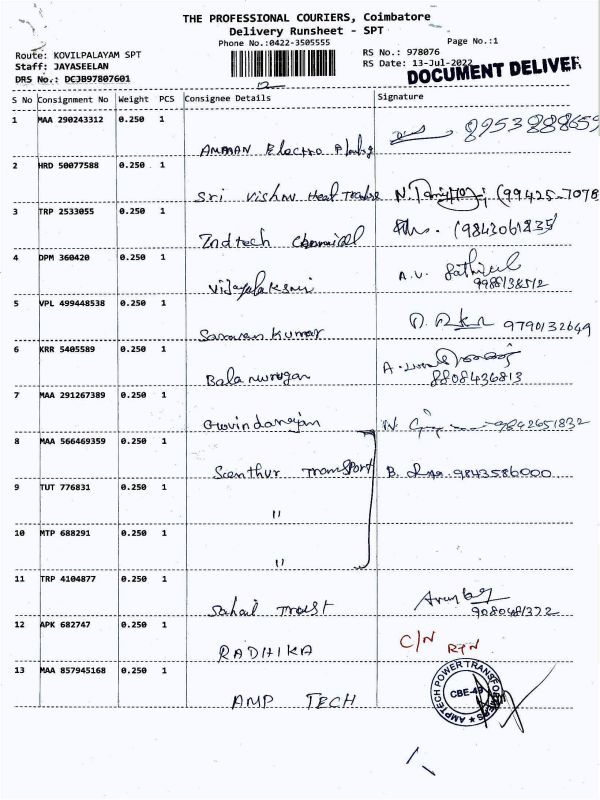 THE PROFESSIONAL COURIERS, Coimbatore
Delivery Runsheet - SPT
Phone No.:0422-3505555
Page No.:1
Route: KOVILPALAYAM SPT
Staff: JAYASEELAN
DRS No.: DCJB97807601
RS No.: 978076
RS Date: 13-Jul-2022
DOCUMENT DELIVER
S No Consignment No Weight PCS Consignee Details Signature
1 MAA 290243312 0.250 1
Amman Electro Plating 8953888659
2 HRD 50077588 0.250 1
Sri Vishnu Heat (99425-7078
3 TRP 2533055 0.250 1
Indtech (9843061835)
4 DPM 360420 0.250 1
Vijayalakshmi A.V. Sathiyal
9988138512
5 VPL 499448538 0.250 1
Saravan Kumar 9790132649
6 KRR 5405589 0.250 1
Balamurugan 8808436813
7 MAA 291267389 0.250 1
Govindarajan 9842651832
8 MAA 566469359 0.250 1
Senthur Transport B. 9843586000
9 TUT 776831 0.250 1
"
10 MTP 688291 0.250 1
"
11 TRP 4104877 0.250 1
Sahail Trust 9080481372
12 APK 682747 0.250 1
RADHIKA C/N RTN
13 MAA 857945168 0.250 1
AMP TECH
AMPTECH POWER TRANSFORMERS
CBE-49